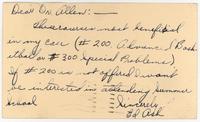 Dear Dr. Allen: —
The course most beneficial
in my case (#200 Advanced Bask-
etball or #300 Special Problems)
If #200 is not offered I won't
be interested in attending summer
school
Sincerely,
Ed Ash